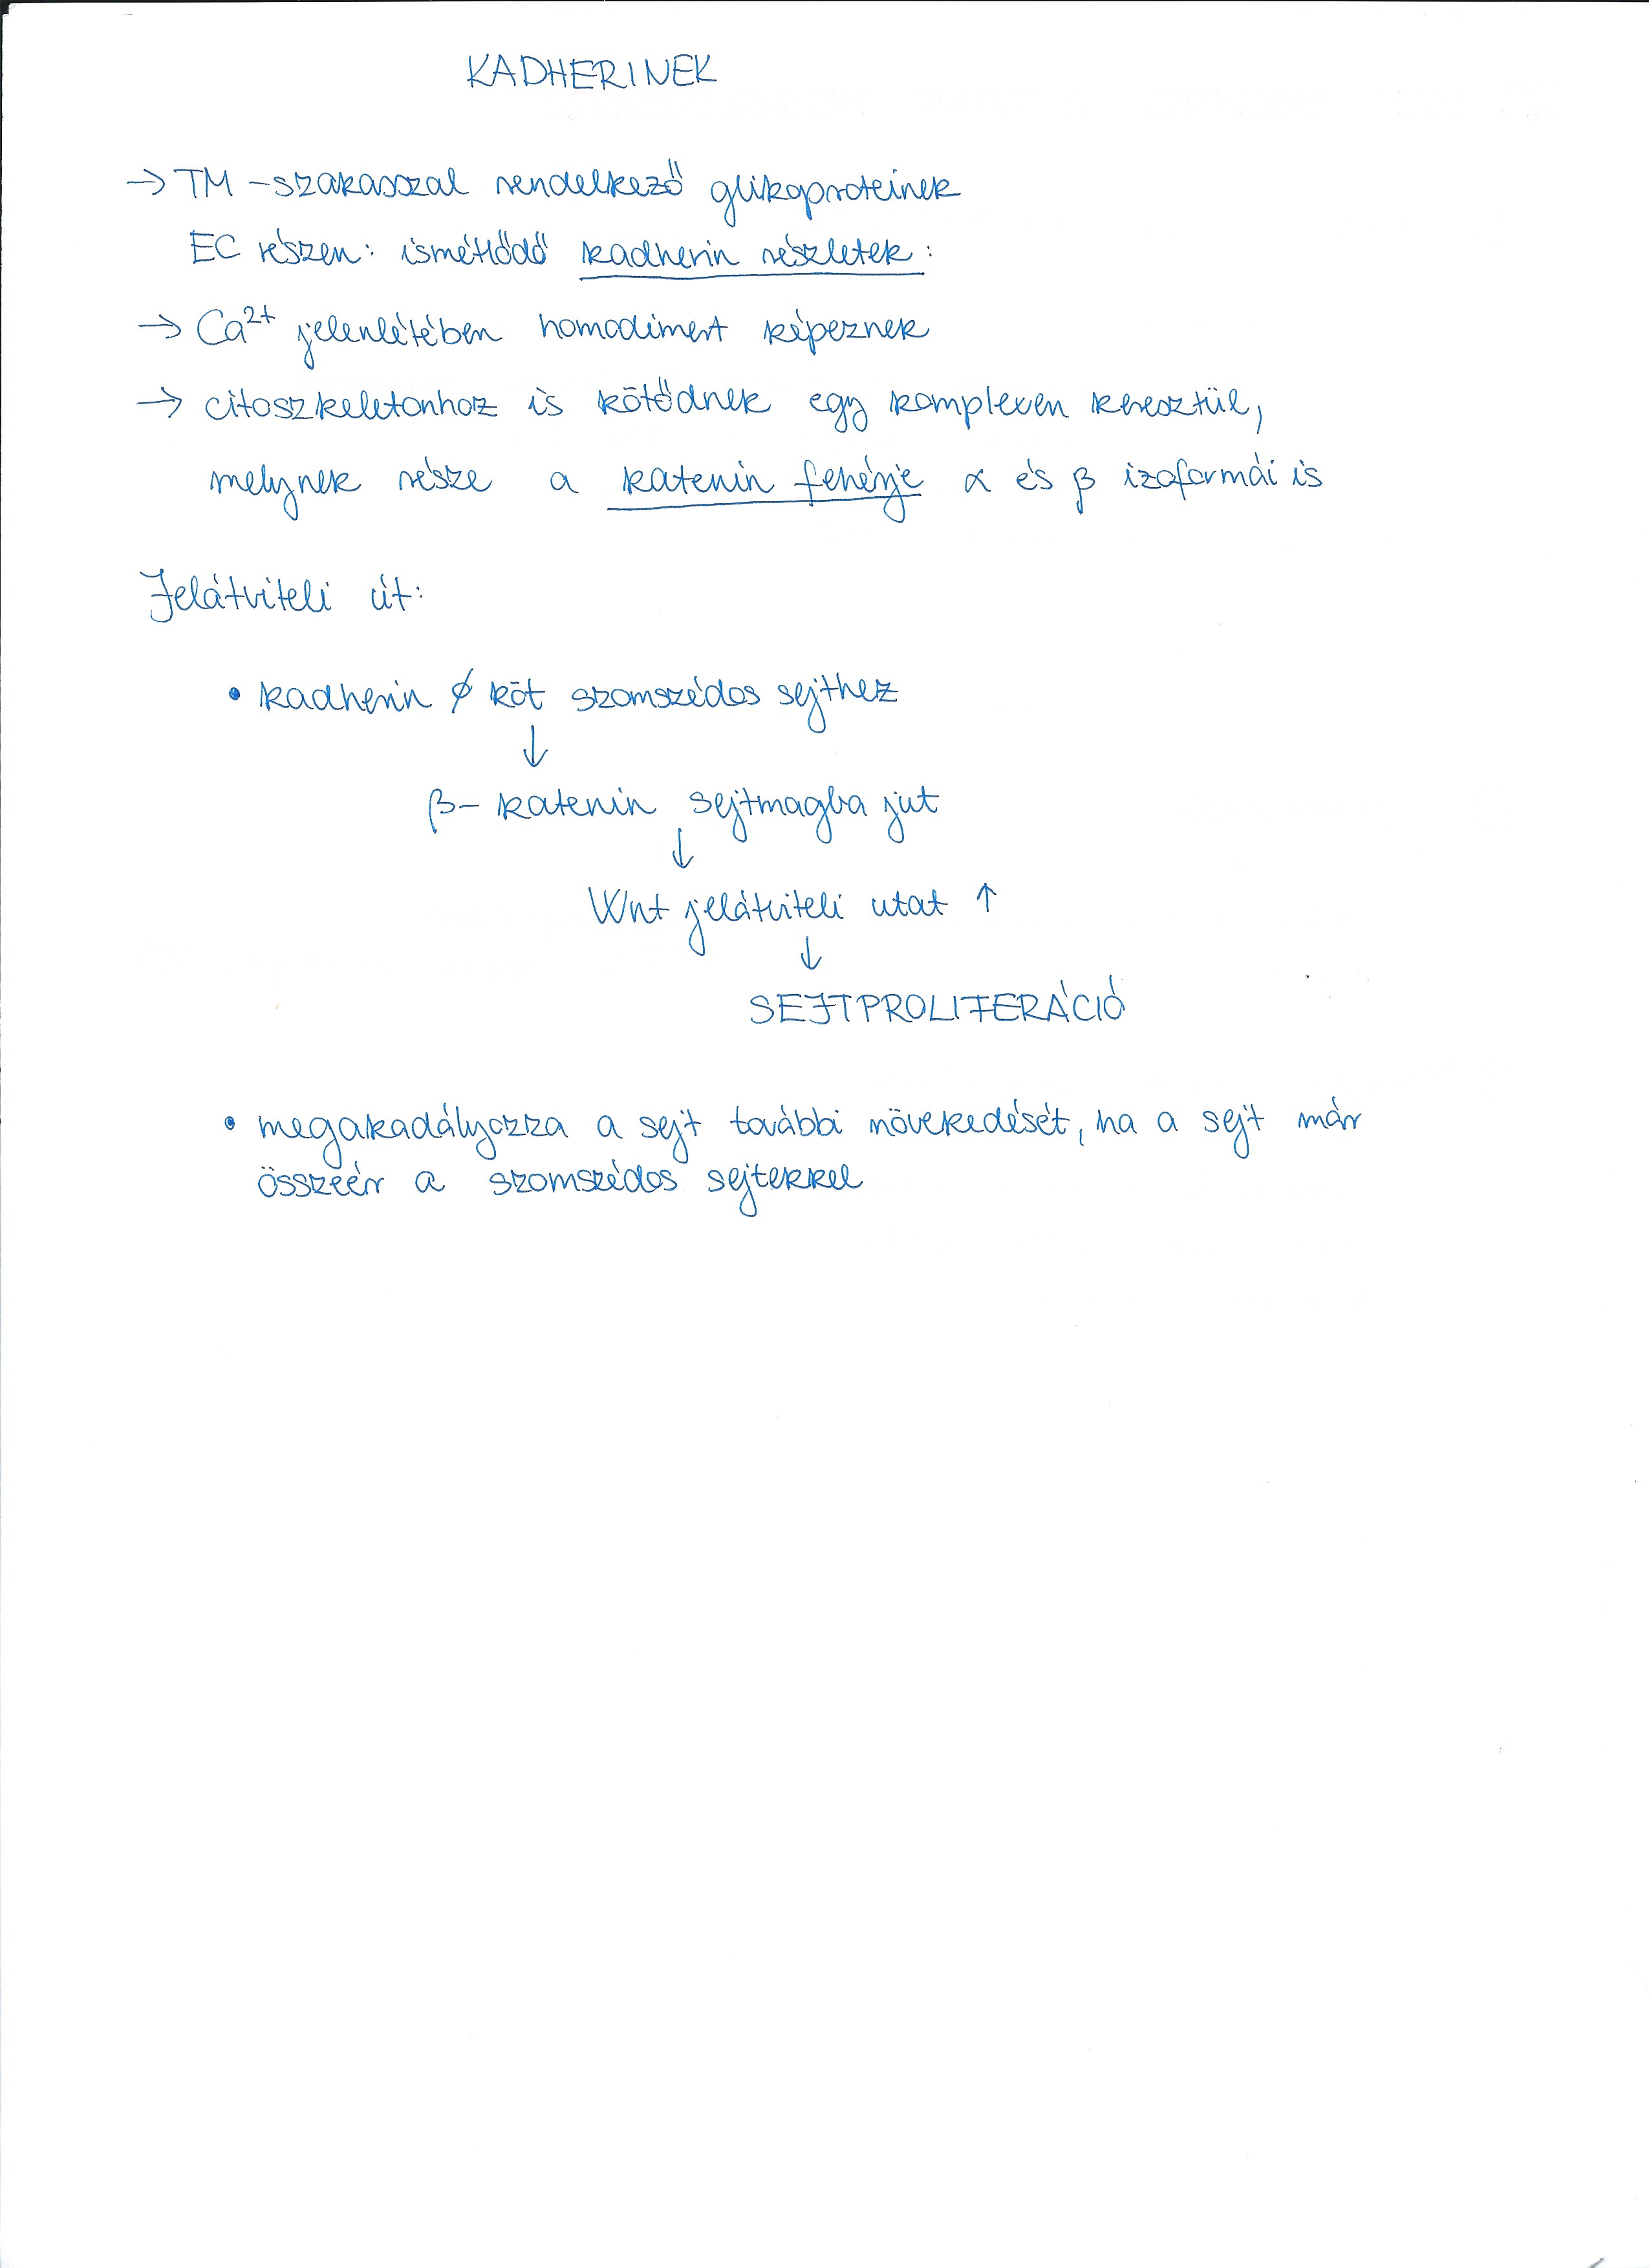 KADHERINEK
→ TM-szakasszal rendelkező glikoproteinek
EC részen: ismétlődő kadherin részletek:
→ Ca²⁺ jelenlétében homodimert képeznek
→ citoszkeletonhoz is kötődnek egy komplexen keresztül,
melynek része a katenin fehérje α és β izoformái is
Jelátviteli út:
• kadherin ∅ köt szomszédos sejthez
↓
β-katenin sejtmagba jut
↓
Wnt jelátviteli utat ↑
↓
SEJTPROLIFERÁCIÓ
• megakadályozza a sejt további növekedését, ha a sejt már
összeér a szomszédos sejtekkel